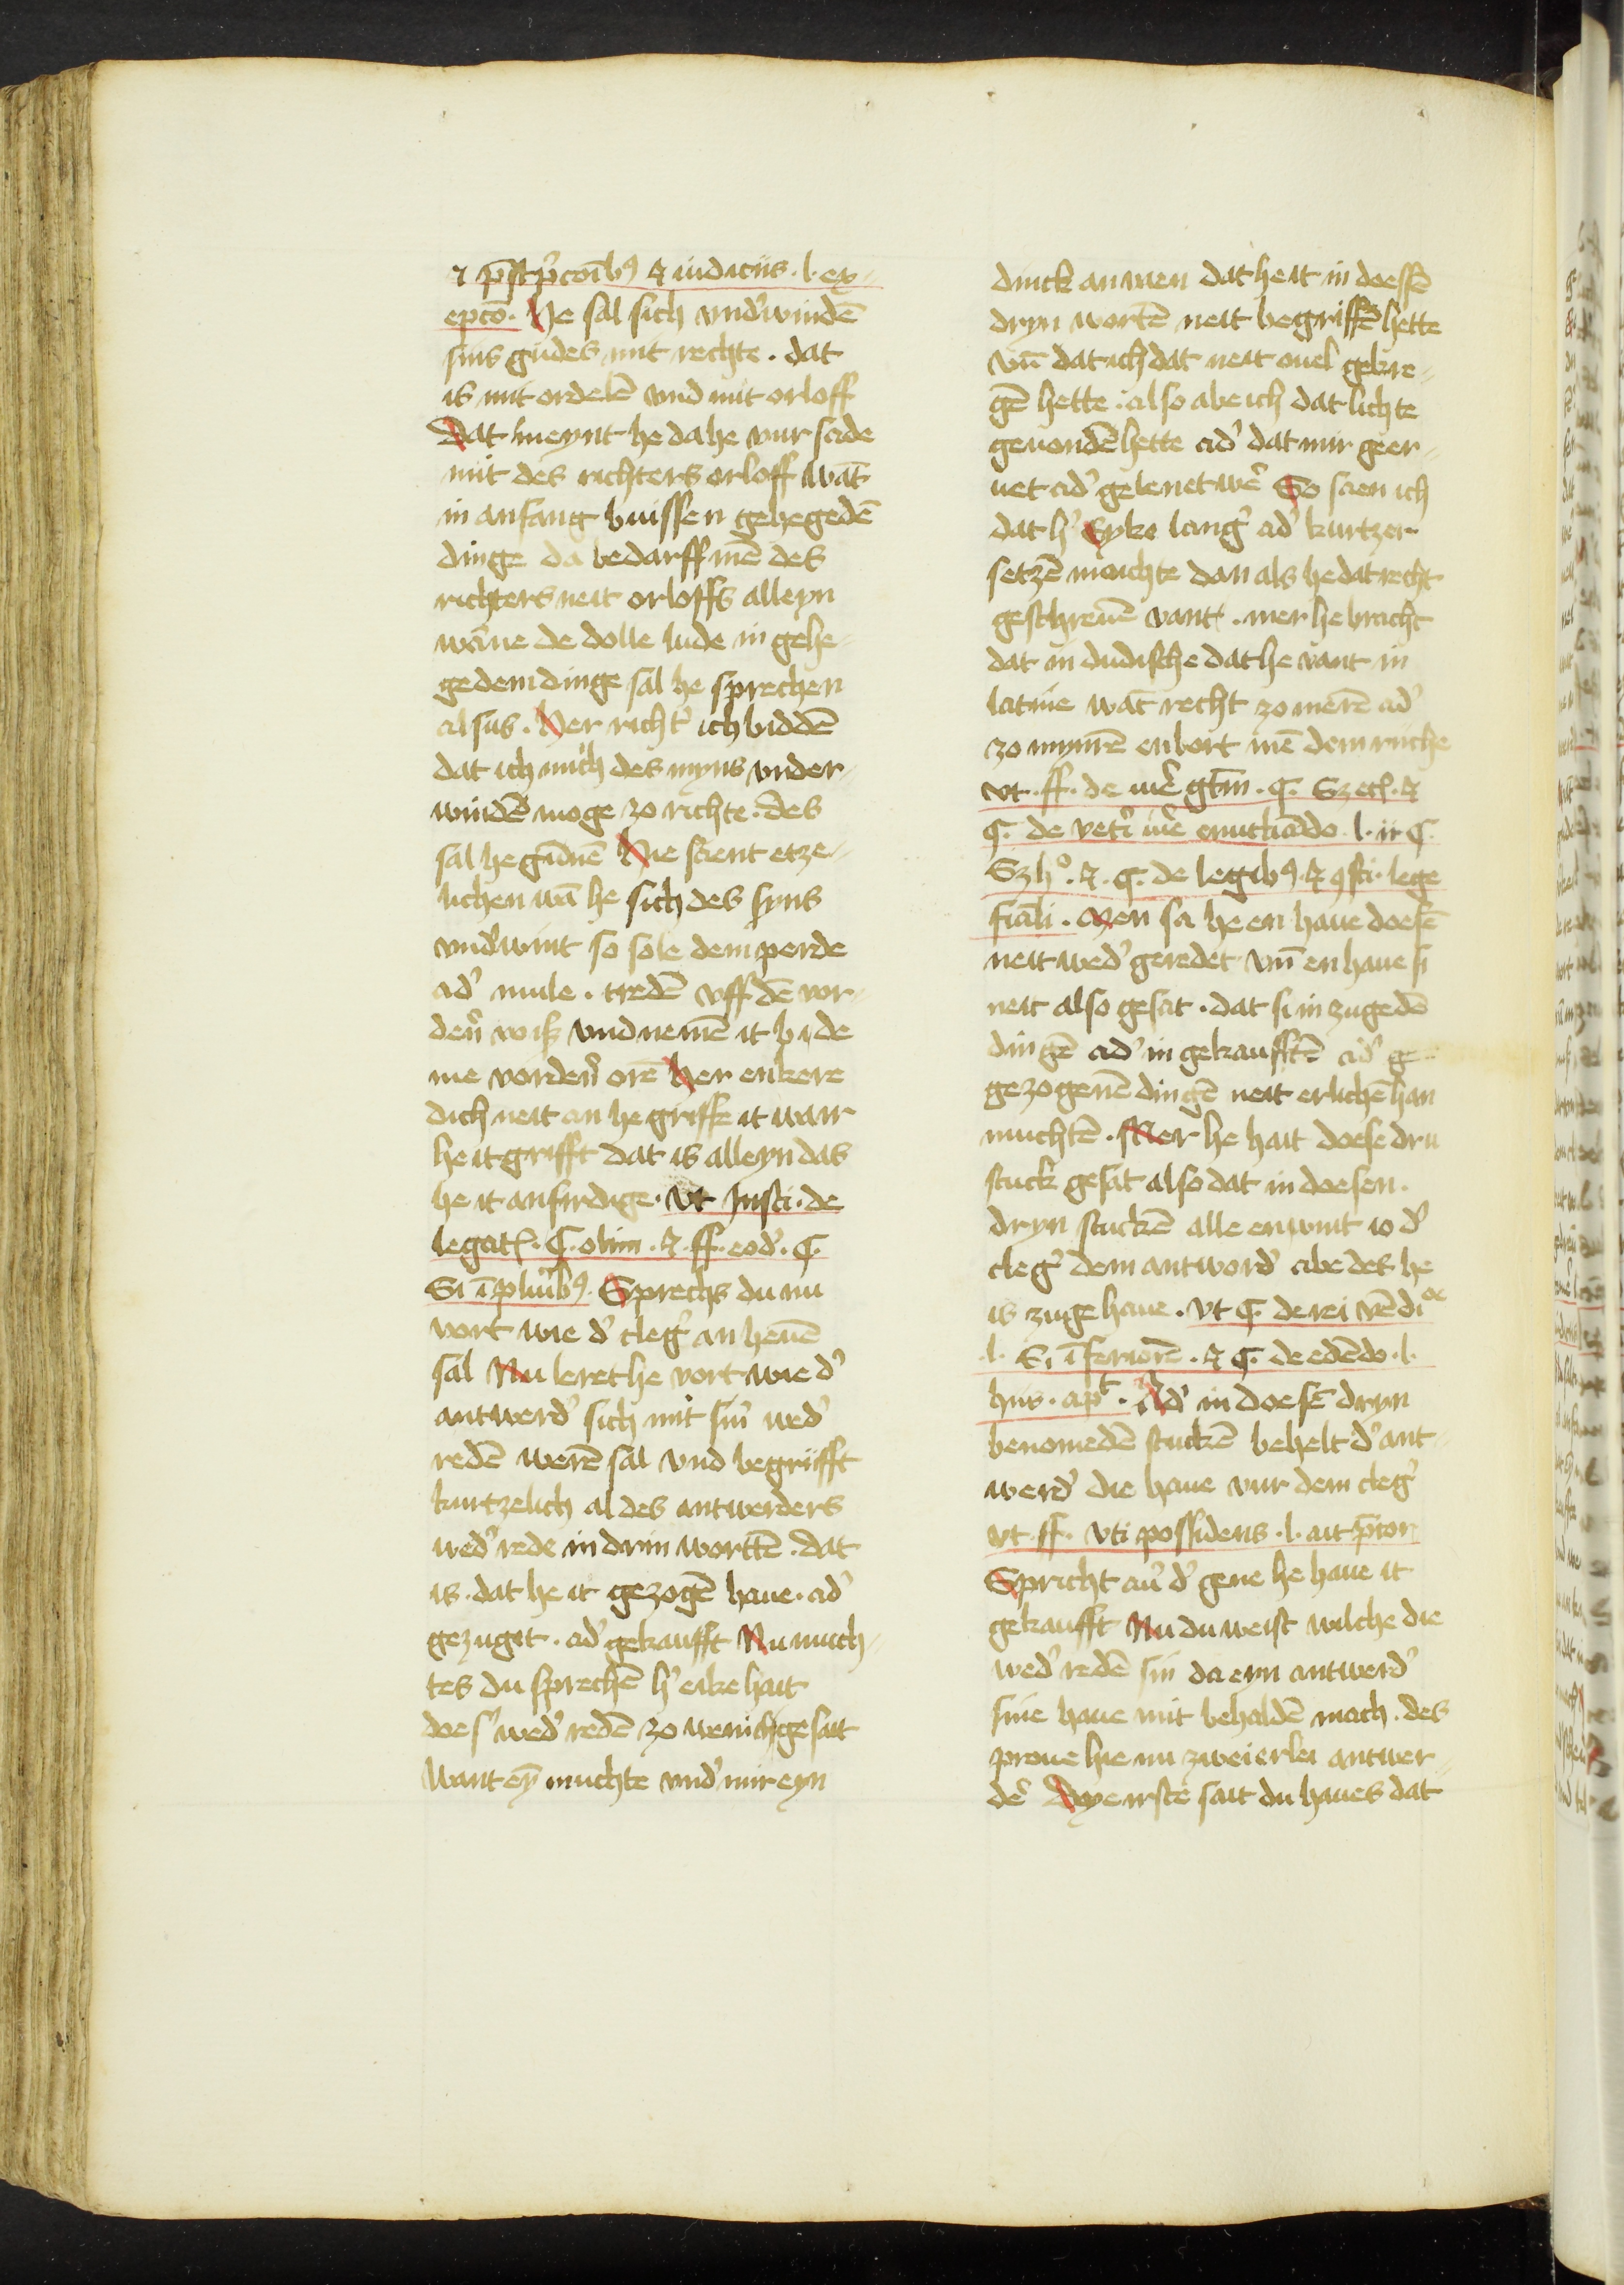 ⁊ p̄scͥpcōībꝯ ⁊ iudiciis · l · ex-
epcō · He sal sich vnd'windē
sins gudes mit rechte · dat
is mit ordelē vnd mit orloff
Dat meynt he da he vur sade
mit des richters orloff wāt
in anfang buissen gehegedē
dinge da bedarff mē des
richters neit orloffs alleyn
wāne de dolle lude in gehe-
gedem dinge sal he sprechen
alsus · Her richt' ich biddē
dat ich mich des myns vnder-
windē moge zo richte · des
sal he gūnē Hie saent etze-
lichen wā he sich des syns
vnd'wint so sole dem perde
ad' mule · tredē vff dē vor-
den' vois vnd nemē it bi de
me vorden' orē Her enkere
dich neit an he griffe it wair
he it grifft dat is alleyn das
he it anfirdige · Vt Insti · de
legat · C · olim · ⁊ · ff · eod' · C ·
Si ī plurībꝯ Sprechs du nu
vort wie d' cleg' an heuē
sal Nu leret he vort wie d'
antwerd' sich mit sin' wed'
redē werē sal vnd begrifft
kurtzelich al des antwerders
wed' rede in drin wortē · dat
is · dat he it gezogē haue · ad'
gezuget · ad' gekaufft Nu much-
tes du sprechē h' eike hait
does' wed' redē zo wenich gesatt
Want eȳ muchte vnd' mir eyn
dinck anuen dat he it in doessē
dryn wortē neit begriffē hette
vn̄ dat ich dat neit ouel gekre-
gē hette · also abe ich dat lichte
geuondē hette ad' dat mir geer-
uet ad' gelenet wē' So saen ich
dat h' Eyke lang' ad' kurtzer
setzē moichte dan als he dat recht
geschreuē vant · mer he bracht
dat in dudische dat he vant in
latine wāt recht zo merē ad'
zo mynrē enbort mē dem riiche
vt · ff · de
C · de vet'i iu'e enucliādo · l · ii C ·
Sz h° · ⁊ · C · de legibꝯ · ⁊ ꝯsti · lege
fināli · Men sa he en haue doesē
neit wed' geredet vn̄ en haue si
neit also gesat · dat si in zugedē
dingē ad' in gekaufftē ad' ge-
gezogenē dingē neit erlichē han
muchtē · Mer he hait doese dru
stuck gesat also dat in doesen ·
dryn stuckē alle enwint io d'
cleg' dem antword' abe des he
is zuge haue · vt C · de rei vēdi
· l · Si īferiorē · ⁊ C · de edēdo · l ·
hiis · apt · Ad' in doesē dryn
benomedē stuckē behelt d' ant-
werd' die haue vur dem cleg'
vt · ff · vti possidens · l · ait p̄tor
Spricht au' d' gene he haue it
gekaufft Nu du weist wilche die
wed' redē sin da eyn antwerd'
sine haue mit behaldē mach · des
proue hie nu zweierlei antwer-
dē' Dye irste sait du haues dat